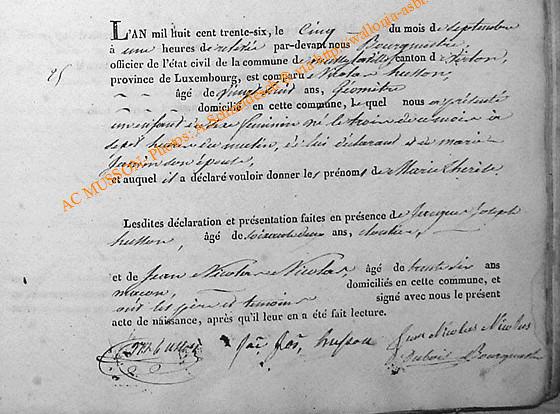 L'AN mil huit cent trente-six, le Cinq du mois de septembre
à une heures de relevée par-devant nous Bourgmestre,
officier de l'état civil de la commune de canton de Virton,
province de Luxembourg, est comparu Nicolas husson,
âgé de ans, Géomètre
domicilié en cette commune, lequel nous a présenté
un enfant du sexe féminin né le trois de ce mois à
sept heures du matin, de lui déclarant et de marie
Jamin son épouse,
et auquel il a déclaré vouloir donner les prénoms de Marie Thérèse
85
Lesdites déclaration et présentation faites en présence de Jacques Joseph
husson, âgé de soixante deux ans, cloutier,
et de Jean Nicolas Nicolas âgé de trente six ans
maçon, domiciliés en cette commune, et
ont les père et témoins signé avec nous le présent
acte de naissance, après qu'il leur en a été fait lecture.
husson
Jean Nicolas Nicolas
Dubois Bourgmestre
AC MUSSON, Photos: A. Schmidt http://wallonia-asb